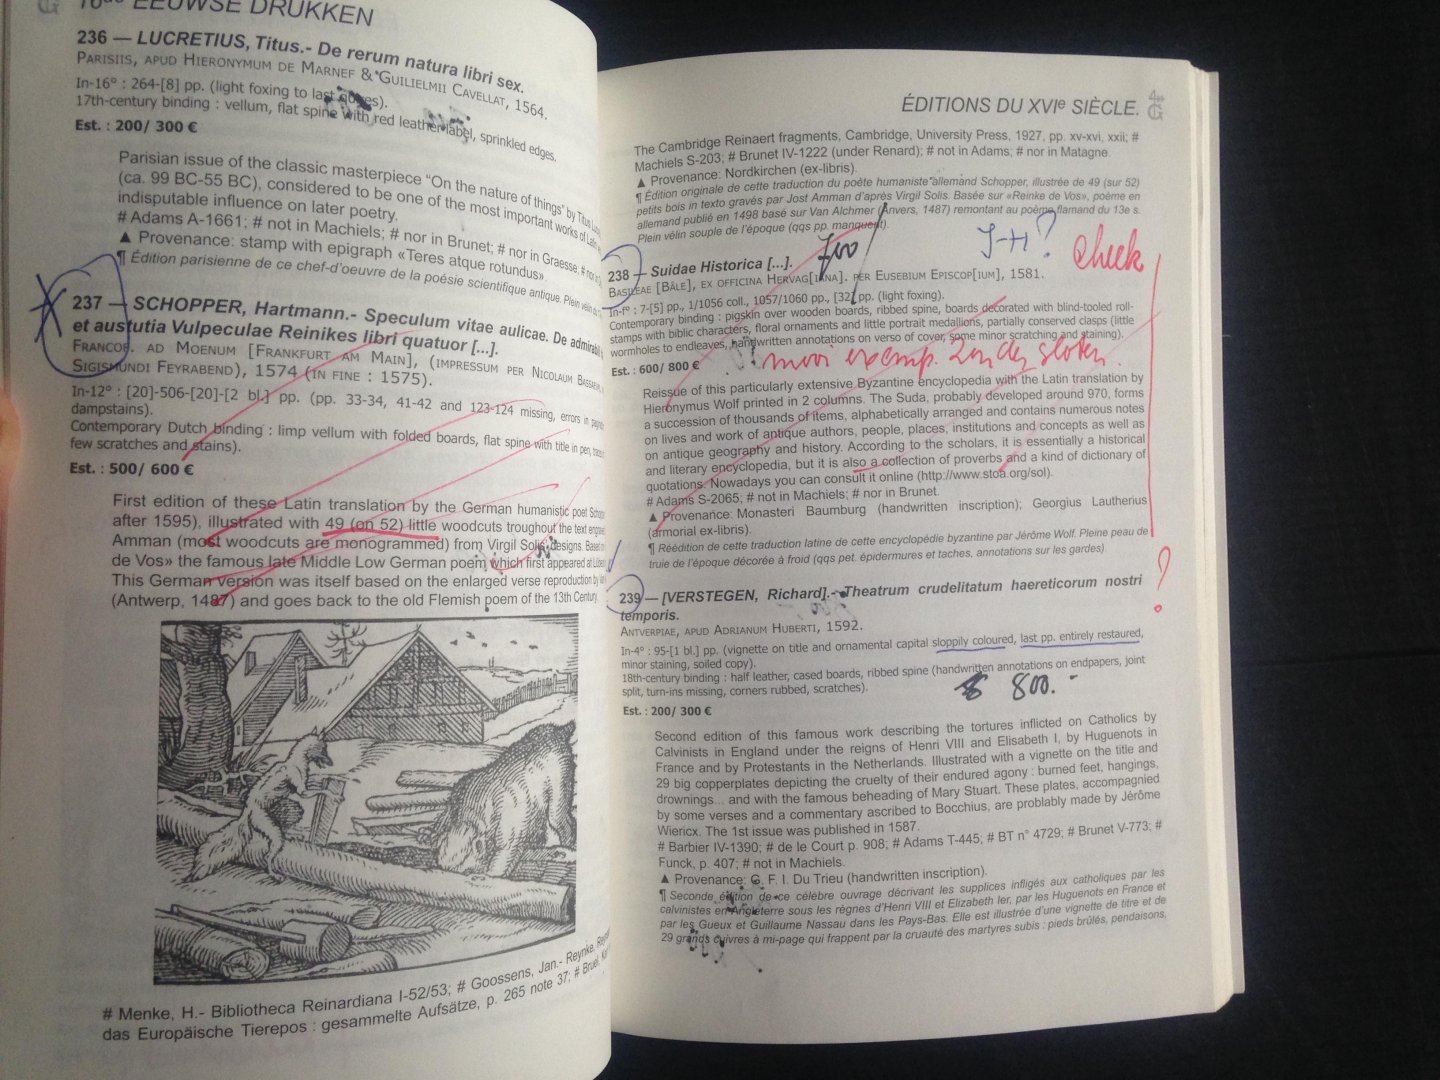 16de EEUWSE DRUKKEN
236 — LUCRETIUS, Titus.- De rerum natura libri sex.
PARISIIS, APUD HIERONYMUM DE MARNEF & GUILIELMII CAVELLAT, 1564.
In-16° : 264-[8] pp. (light foxing to last).
17th-century binding : vellum, flat spine with red leather label, sprinkled edges.
Est. : 200/ 300 €
Parisian issue of the classic masterpiece “On the nature of things” by Titus
(ca. 99 BC-55 BC), considered to be one of the most important works of Latin
indisputable influence on later poetry.
# Adams A-1661; # not in Machiels; # nor in Brunet; # nor in Graesse; # nor in
▲ Provenance: stamp with epigraph «Teres atque rotundus».
¶ Édition parisienne de ce chef-d’oeuvre de la poésie scientifique antique. Plein vélin
237 — SCHOPPER, Hartmann.- Speculum vitae aulicae. De admirabili
et austutia Vulpeculae Reinikes libri quatuor [...].
FRANCOF. AD MOENUM [FRANKFURT AM MAIN], (IMPRESSUM PER NICOLAUM BASSEUM,
SIGISMUNDI FEYRABEND), 1574 (IN FINE : 1575).
In-12° : [20]-506-[20]-[2 bl.] pp. (pp. 33-34, 41-42 and 123-124 missing, errors in
dampstains).
Contemporary Dutch binding : limp vellum with folded boards, flat spine with title in pen,
few scratches and stains).
Est. : 500/ 600 €
First edition of these Latin translation by the German humanistic poet
after 1595), illustrated with 49 (on 52) little woodcuts troughout the text
Amman (most woodcuts are monogrammed) from Virgil Solis designs. Based
de Vos» the famous late Middle Low German poem, which first appeared at
This German version was itself based on the enlarged verse reproduction by
(Antwerp, 1487) and goes back to the old Flemish poem of the 13th Century.
# Menke, H.- Bibliotheca Reinardiana I-52/53; # Goossens, Jan.- Reynke,
das Europäische Tierepos : gesammelte Aufsätze, p. 265 note 37; #
ÉDITIONS DU XVIe SIÈCLE.
The Cambridge Reinaert fragments, Cambridge, University Press, 1927, pp. xv-xvi, xxii; #
Machiels S-203; # Brunet IV-1222 (under Renard); # not in Adams; # nor in Matagne.
▲ Provenance: Nordkirchen (ex-libris).
¶ Édition originale de cette traduction du poète humaniste allemand Schopper, illustrée de 49 (sur 52)
petits bois in texto gravés par Jost Amman d’après Virgil Solis. Basée sur «Reinke de Vos», poème en
allemand publié en 1498 basé sur Van Alchmer (Anvers, 1487) remontant au poème flamand du 13e s.
Plein vélin souple de l’époque (qqs pp. manquent).
700 J-H? check
238 — Suidae Historica [...].
BASILEAE [BÂLE], EX OFFICINA HERVAG[IANA]. PER EUSEBIUM EPISCOP[IUM], 1581.
In-f° : 7-[5] pp., 1/1056 coll., 1057/1060 pp., [32] pp. (light foxing).
Contemporary binding : pigskin over wooden boards, ribbed spine, boards decorated with blind-tooled roll-
stamps with biblic characters, floral ornaments and little portrait medallions, partially conserved clasps (little
wormholes to endleaves, handwritten annotations on verso of cover, some minor scratching and staining).
mooi exemp. zonder sloten.
Est. : 600/ 800 €
Reissue of this particularly extensive Byzantine encyclopedia with the Latin translation by
Hieronymus Wolf printed in 2 columns. The Suda, probably developed around 970, forms
a succession of thousands of items, alphabetically arranged and contains numerous notes
on lives and work of antique authors, people, places, institutions and concepts as well as
on antique geography and history. According to the scholars, it is essentially a historical
and literary encyclopedia, but it is also a collection of proverbs and a kind of dictionary of
quotations. Nowadays you can consult it online (http://www.stoa.org/sol).
# Adams S-2065; # not in Machiels; # nor in Brunet.
▲ Provenance: Monasteri Baumburg (handwritten inscription); Georgius Lautherius
(armorial ex-libris).
¶ Réédition de cette traduction latine de cette encyclopédie byzantine par Jérôme Wolf. Pleine peau de
truie de l’époque décorée à froid (qqs pet. épidermures et taches, annotations sur les gardes).
?
239 — [VERSTEGEN, Richard].- Theatrum crudelitatum haereticorum nostri
temporis.
ANTVERPIAE, APUD ADRIANUM HUBERTI, 1592.
In-4° : 95-[1 bl.] pp. (vignette on title and ornamental capital sloppily coloured, last pp. entirely restaured,
minor staining, soiled copy).
18th-century binding : half leather, cased boards, ribbed spine (handwritten annotations on endpapers, joint
split, turn-ins missing, corners rubbed, scratches).
800.-
Est. : 200/ 300 €
Second edition of this famous work describing the tortures inflicted on Catholics by
Calvinists in England under the reigns of Henri VIII and Elisabeth I, by Huguenots in
France and by Protestants in the Netherlands. Illustrated with a vignette on the title and
29 big copperplates depicting the cruelty of their endured agony : burned feet, hangings,
drownings... and with the famous beheading of Mary Stuart. These plates, accompagnied
by some verses and a commentary ascribed to Bocchius, are problably made by Jérôme
Wiericx. The 1st issue was published in 1587.
# Barbier IV-1390; # de le Court p. 908; # Adams T-445; # BT n° 4729; # Brunet V-773; #
Funck, p. 407; # not in Machiels.
▲ Provenance: G. F. I. Du Trieu (handwritten inscription).
¶ Seconde édition de ce célèbre ouvrage décrivant les supplices infligés aux catholiques par les
calvinistes en Angleterre sous les règnes d’Henri VIII et Elizabeth Ier, par les Huguenots en France et
par les Gueux et Guillaume Nassau dans les Pays-Bas. Elle est illustrée d’une vignette de titre et de
29 grands cuivres à mi-page qui frappent par la cruauté des martyres subis : pieds brûlés, pendaisons,